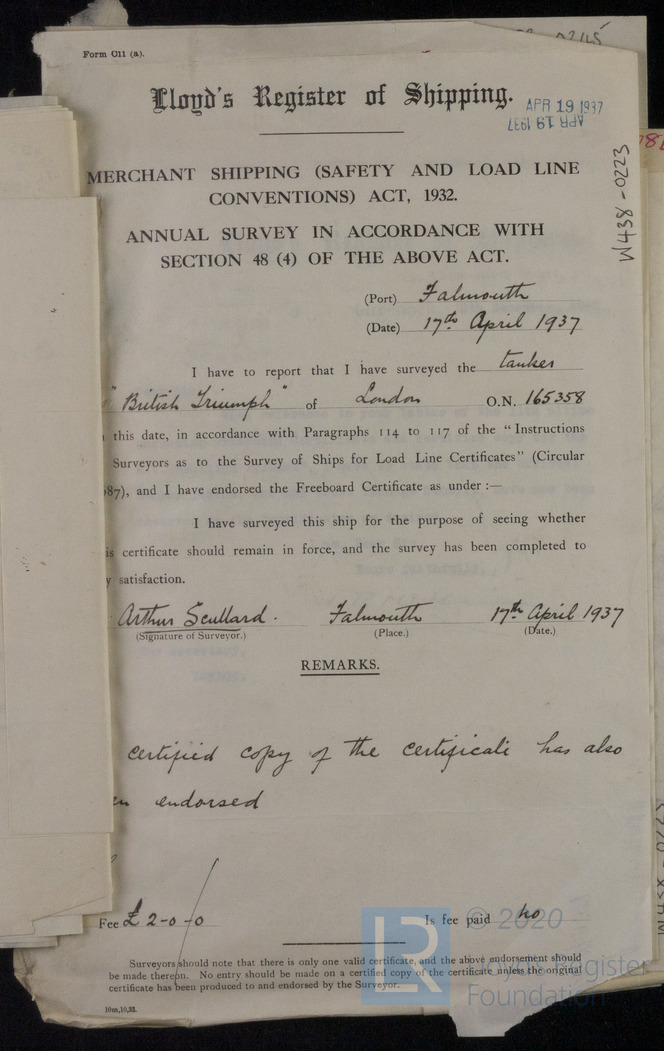 Form C11 (a).
Lloyd's Register of Shipping.
APR 19 1937
APR 19 1937
W438-0223
MERCHANT SHIPPING (SAFETY AND LOAD LINE
CONVENTIONS) ACT, 1932.
ANNUAL SURVEY IN ACCORDANCE WITH
SECTION 48 (4) OF THE ABOVE ACT.
(Port) Falmouth
(Date) 17th April 1937
I have to report that I have surveyed the tanker
"British Triumph" of London O.N. 165358
this date, in accordance with Paragraphs 114 to 117 of the "Instructions
Surveyors as to the Survey of Ships for Load Line Certificates" (Circular
87), and I have endorsed the Freeboard Certificate as under :—
I have surveyed this ship for the purpose of seeing whether
is certificate should remain in force, and the survey has been completed to
y satisfaction.
Arthur Scullard. Falmouth 17th April 1937
(Signature of Surveyor.) (Place.) (Date.)
REMARKS.
certified copy of the certificate has also
en endorsed
Fee £ 2-0-0 Is fee paid no
Surveyors should note that there is only one valid certificate, and the above endorsement should
be made thereon. No entry should be made on a certified copy of the certificate unless the original
certificate has been produced to and endorsed by the Surveyor.
10m,10,32.
LR
© 2020
Lloyd's Register
Foundation